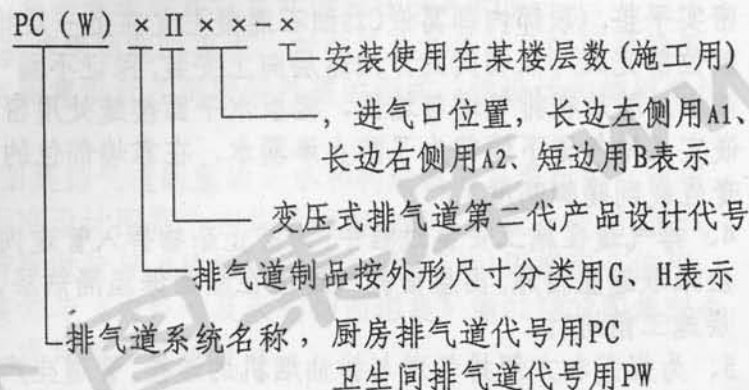 PC(W)×Ⅱ××-×
安装使用在某楼层数(施工用)
, 进气口位置, 长边左侧用A1、
长边右侧用A2、短边用B表示
变压式排气道第二代产品设计代号
排气道制品按外形尺寸分类用G、H表示
排气道系统名称, 厨房排气道代号用PC
卫生间排气道代号用PW
图集库 WW